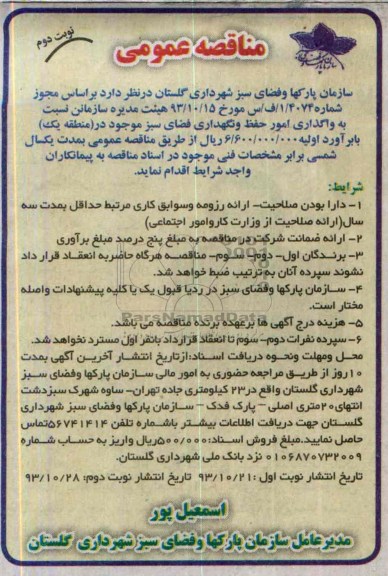 نوبت دوم
مناقصه عمومی
سازمان پارکها وفضای سبز شهرداری گلستان درنظر دارد براساس مجوز
شماره۱/۴۰۷۴/ف/س مورخ ۹۳/۱۰/۱۵ هیئت مدیره سازمان نسبت
به واگذاری امور حفظ ونگهداری فضای سبز موجود در(منطقه یک)
بابرآورد اولیه۶/۶۰۰/۰۰۰/۰۰۰ ریال از طریق مناقصه عمومی بمدت یکسال
شمسی برابر مشخصات فنی موجود در اسناد مناقصه به پیمانکاران
واجد شرایط اقدام نماید.
شرایط:
۱- دارا بودن صلاحیت- ارائه رزومه وسوابق کاری مرتبط حداقل بمدت سه
سال(ارائه صلاحیت از وزارت کاروامور اجتماعی)
۲- ارائه ضمانت شرکت در مناقصه به مبلغ پنج درصد مبلغ برآوری
۳- برندگان اول- دوم- سوم- مناقصه هرگاه حاضربه انعقاد قرار داد
نشوند سپرده آنان به ترتیب ضبط خواهد شد.
۴- سازمان پارکها وفضای سبز در ردیا قبول یک یا کلیه پیشنهادات واصله
مختار است.
۵- هزینه درج آگهی ها برعهده برنده مناقصه می باشد.
۶- سپرده نفرات دوم- سوم تا انعقاد قرارداد بانفر اول مسترد نخواهد شد.
محل ومهلت ونحوه دریافت اسناد:ازتاریخ انتشار آخرین آگهی بمدت
۱۰روز از طریق مراجعه حضوری به امور مالی سازمان پارکها وفضای سبز
شهرداری گلستان واقع در۲۳ کیلومتری جاده تهران- ساوه شهرک سبزدشت
انتهای۲۰متری اصلی- پارک فدک- سازمان پارکها وفضای سبز شهرداری
گلستان جهت دریافت اطلاعات بیشتر باشماره تلفن ۵۶۷۴۱۴۱۴تماس
حاصل نمایید.مبلغ فروش اسناد:۵۰۰/۰۰۰ریال واریز به حساب شماره
۰۱۰۶۸۷۰۷۳۲۰۰۹ نزد بانک ملی شهرداری گلستان.
تاریخ انتشار نوبت اول :۹۳/۱۰/۲۱ تاریخ انتشار نوبت دوم: ۹۳/۱۰/۲۸
اسمعیل پور
مدیرعامل سازمان پارکها وفضای سبز شهرداری گلستان